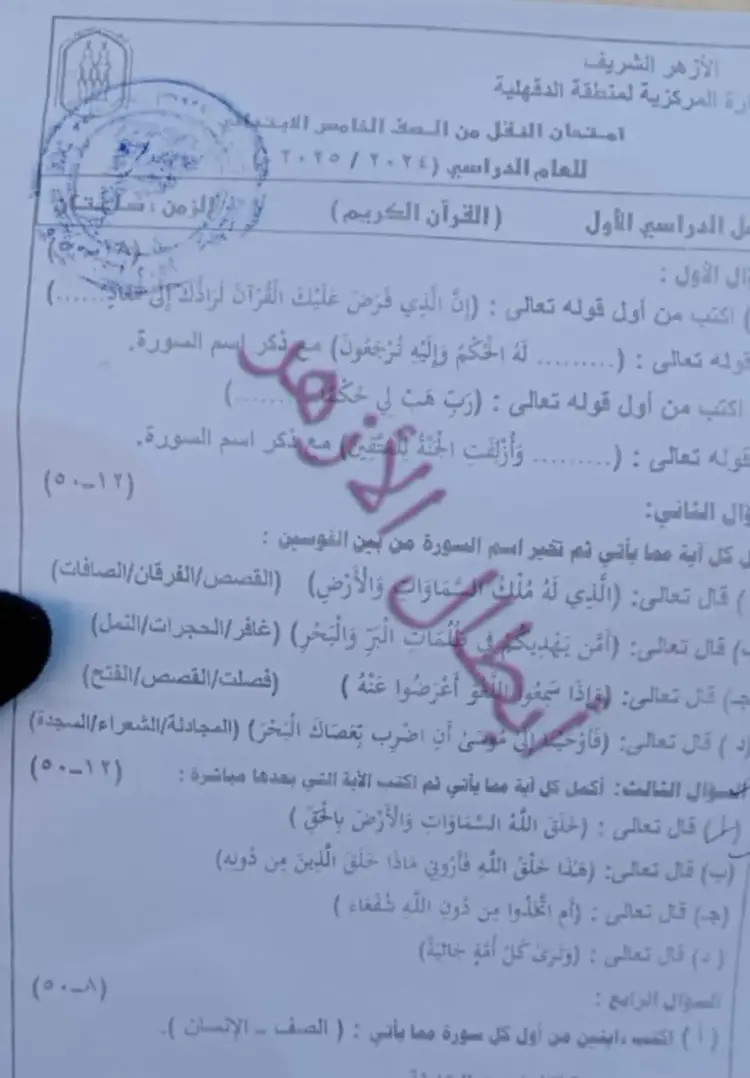 الأزهر الشريف
المركزية لمنطقة الدقهلية
امتحان النقل من الصف الخامس
للعام الدراسي (٢٠٢٤ / ٢٠٢٥
الدراسي الأول (القرآن الكريم) الزمن : ساعتان
الأول : (١٨ــ٥٠)
) اكتب من أول قوله تعالى : (إِنَّ الَّذِي فَرَضَ عَلَيْكَ الْقُرْآنَ لَرَادُّكَ إِلَىٰ مَعَادٍ.......)
قوله تعالى : (......... لَهُ الْحُكْمُ وَإِلَيْهِ تُرْجَعُونَ) مع ذكر اسم السورة.
اكتب من أول قوله تعالى : (رَبِّ هَبْ لِي حُكْمًا .......)
قوله تعالى : (......... وَأُزْلِفَتِ الْجَنَّةُ لِلْمُتَّقِينَ) مع ذكر اسم السورة.
الثاني: (١٢ــ٥٠)
كل آية مما يأتي ثم تخير اسم السورة من بين القوسين :
) قال تعالى: (الَّذِي لَهُ مُلْكُ السَّمَاوَاتِ وَالْأَرْضِ) (القصص/الفرقان/الصافات)
ب) قال تعالى: (أَمَّن يَهْدِيكُمْ فِي ظُلُمَاتِ الْبَرِّ وَالْبَحْرِ) (غافر/الحجرات/النمل)
جـ) قال تعالى: (وَإِذَا سَمِعُوا اللَّغْوَ أَعْرَضُوا عَنْهُ ) (فصلت/القصص/الفتح)
(د ) قال تعالى: (فَأَوْحَيْنَا إِلَىٰ مُوسَىٰ أَنِ اضْرِب بِّعَصَاكَ الْبَحْرَ) (المجادلة/الشعراء/السجدة)
السؤال الثالث: أكمل كل آية مما يأتي ثم اكتب الآية التي بعدها مباشرة : (١٢ــ٥٠)
(أ) قال تعالى : (خَلَقَ اللَّهُ السَّمَاوَاتِ وَالْأَرْضَ بِالْحَقِّ )
(ب) قال تعالى: (هَٰذَا خَلْقُ اللَّهِ فَأَرُونِي مَاذَا خَلَقَ الَّذِينَ مِن دُونِهِ)
(جـ) قال تعالى : (أَمِ اتَّخَذُوا مِن دُونِ اللَّهِ شُفَعَاءَ )
( د) قال تعالى : (وَتَرَىٰ كُلَّ أُمَّةٍ جَاثِيَةً)
السؤال الرابع : (٨ــ٥٠)
( أ ) اكتب آيتين من أول كل سورة مما يأتي : ( الصف ــ الإنسان ).
أبطال الأزهر